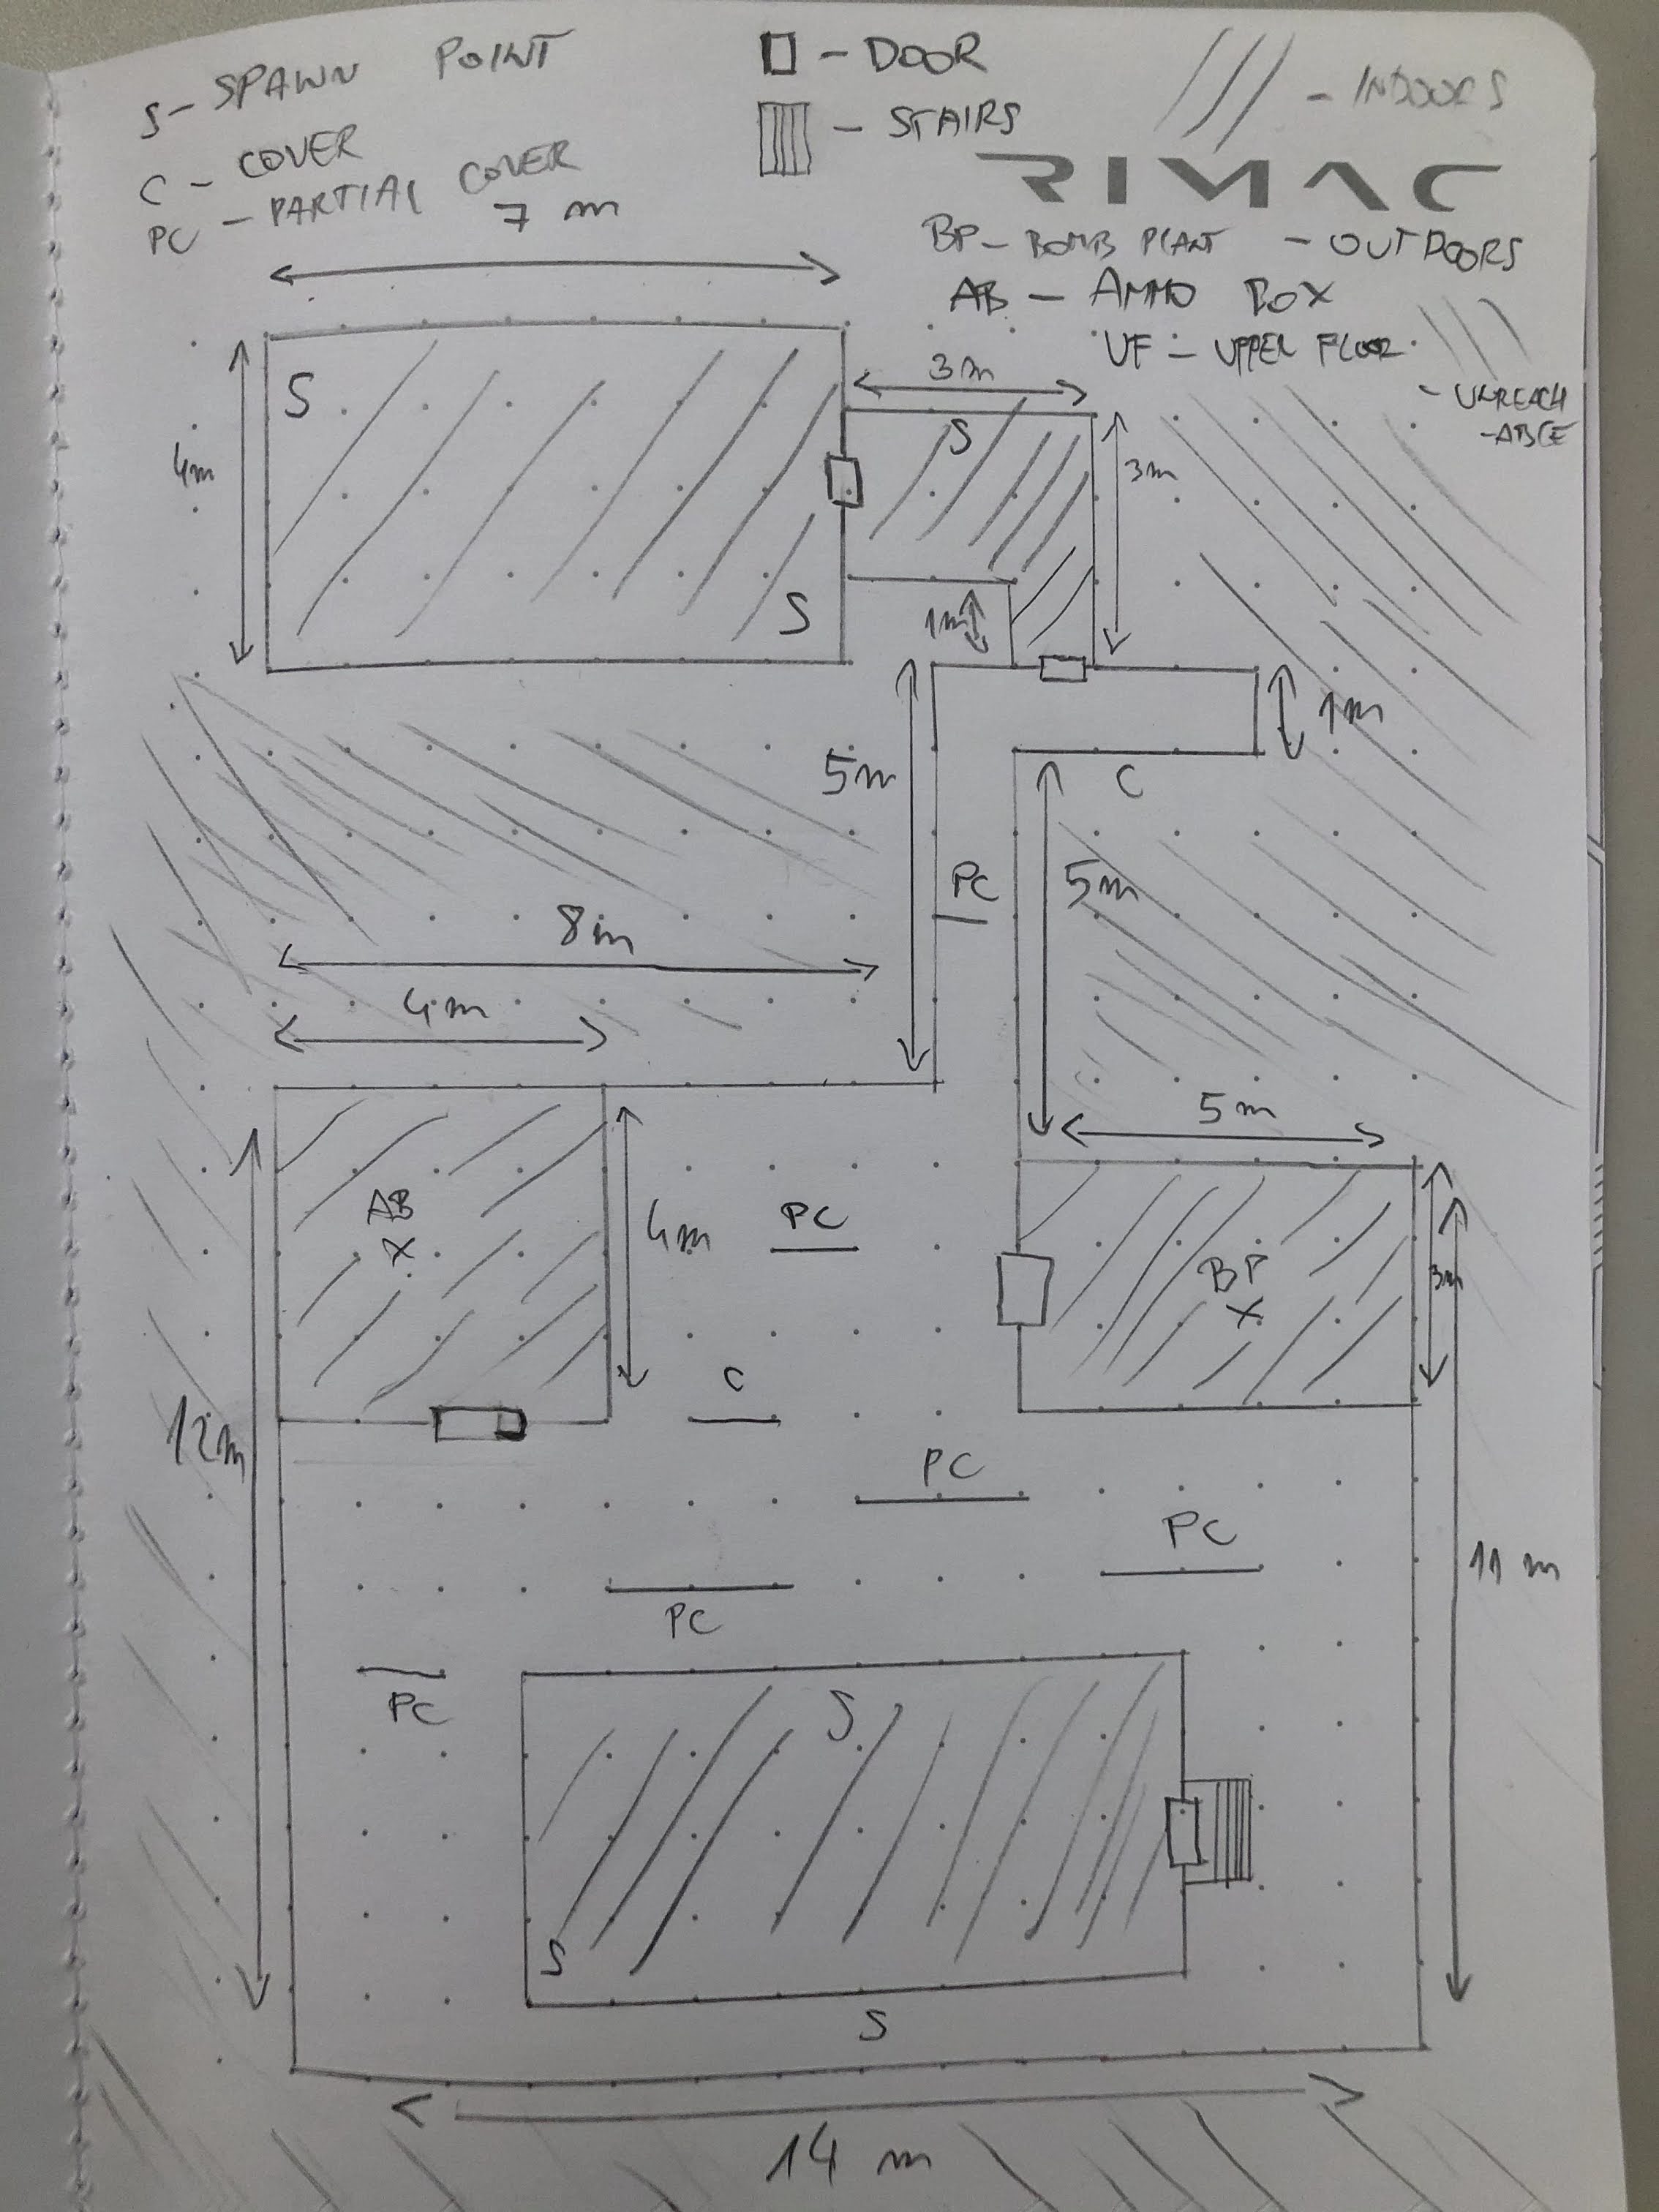 S - SPAWN POINT
C - COVER
PC - PARTIAL COVER
- DOOR
- STAIRS
- INDOORS
RIMAC
BP - BOMB PLANT
- OUTDOORS
AB - AMMO BOX
UF - UPPER FLOOR
- UNREACH
-ABLE
7 m
S
3m
4m
S
3m
S
1m
1m
5m
C
PC
5m
8m
4m
5m
AB
X
4m
PC
BP
X
3m
C
12m
PC
PC
11 m
PC
PC
S
S
S
14 m